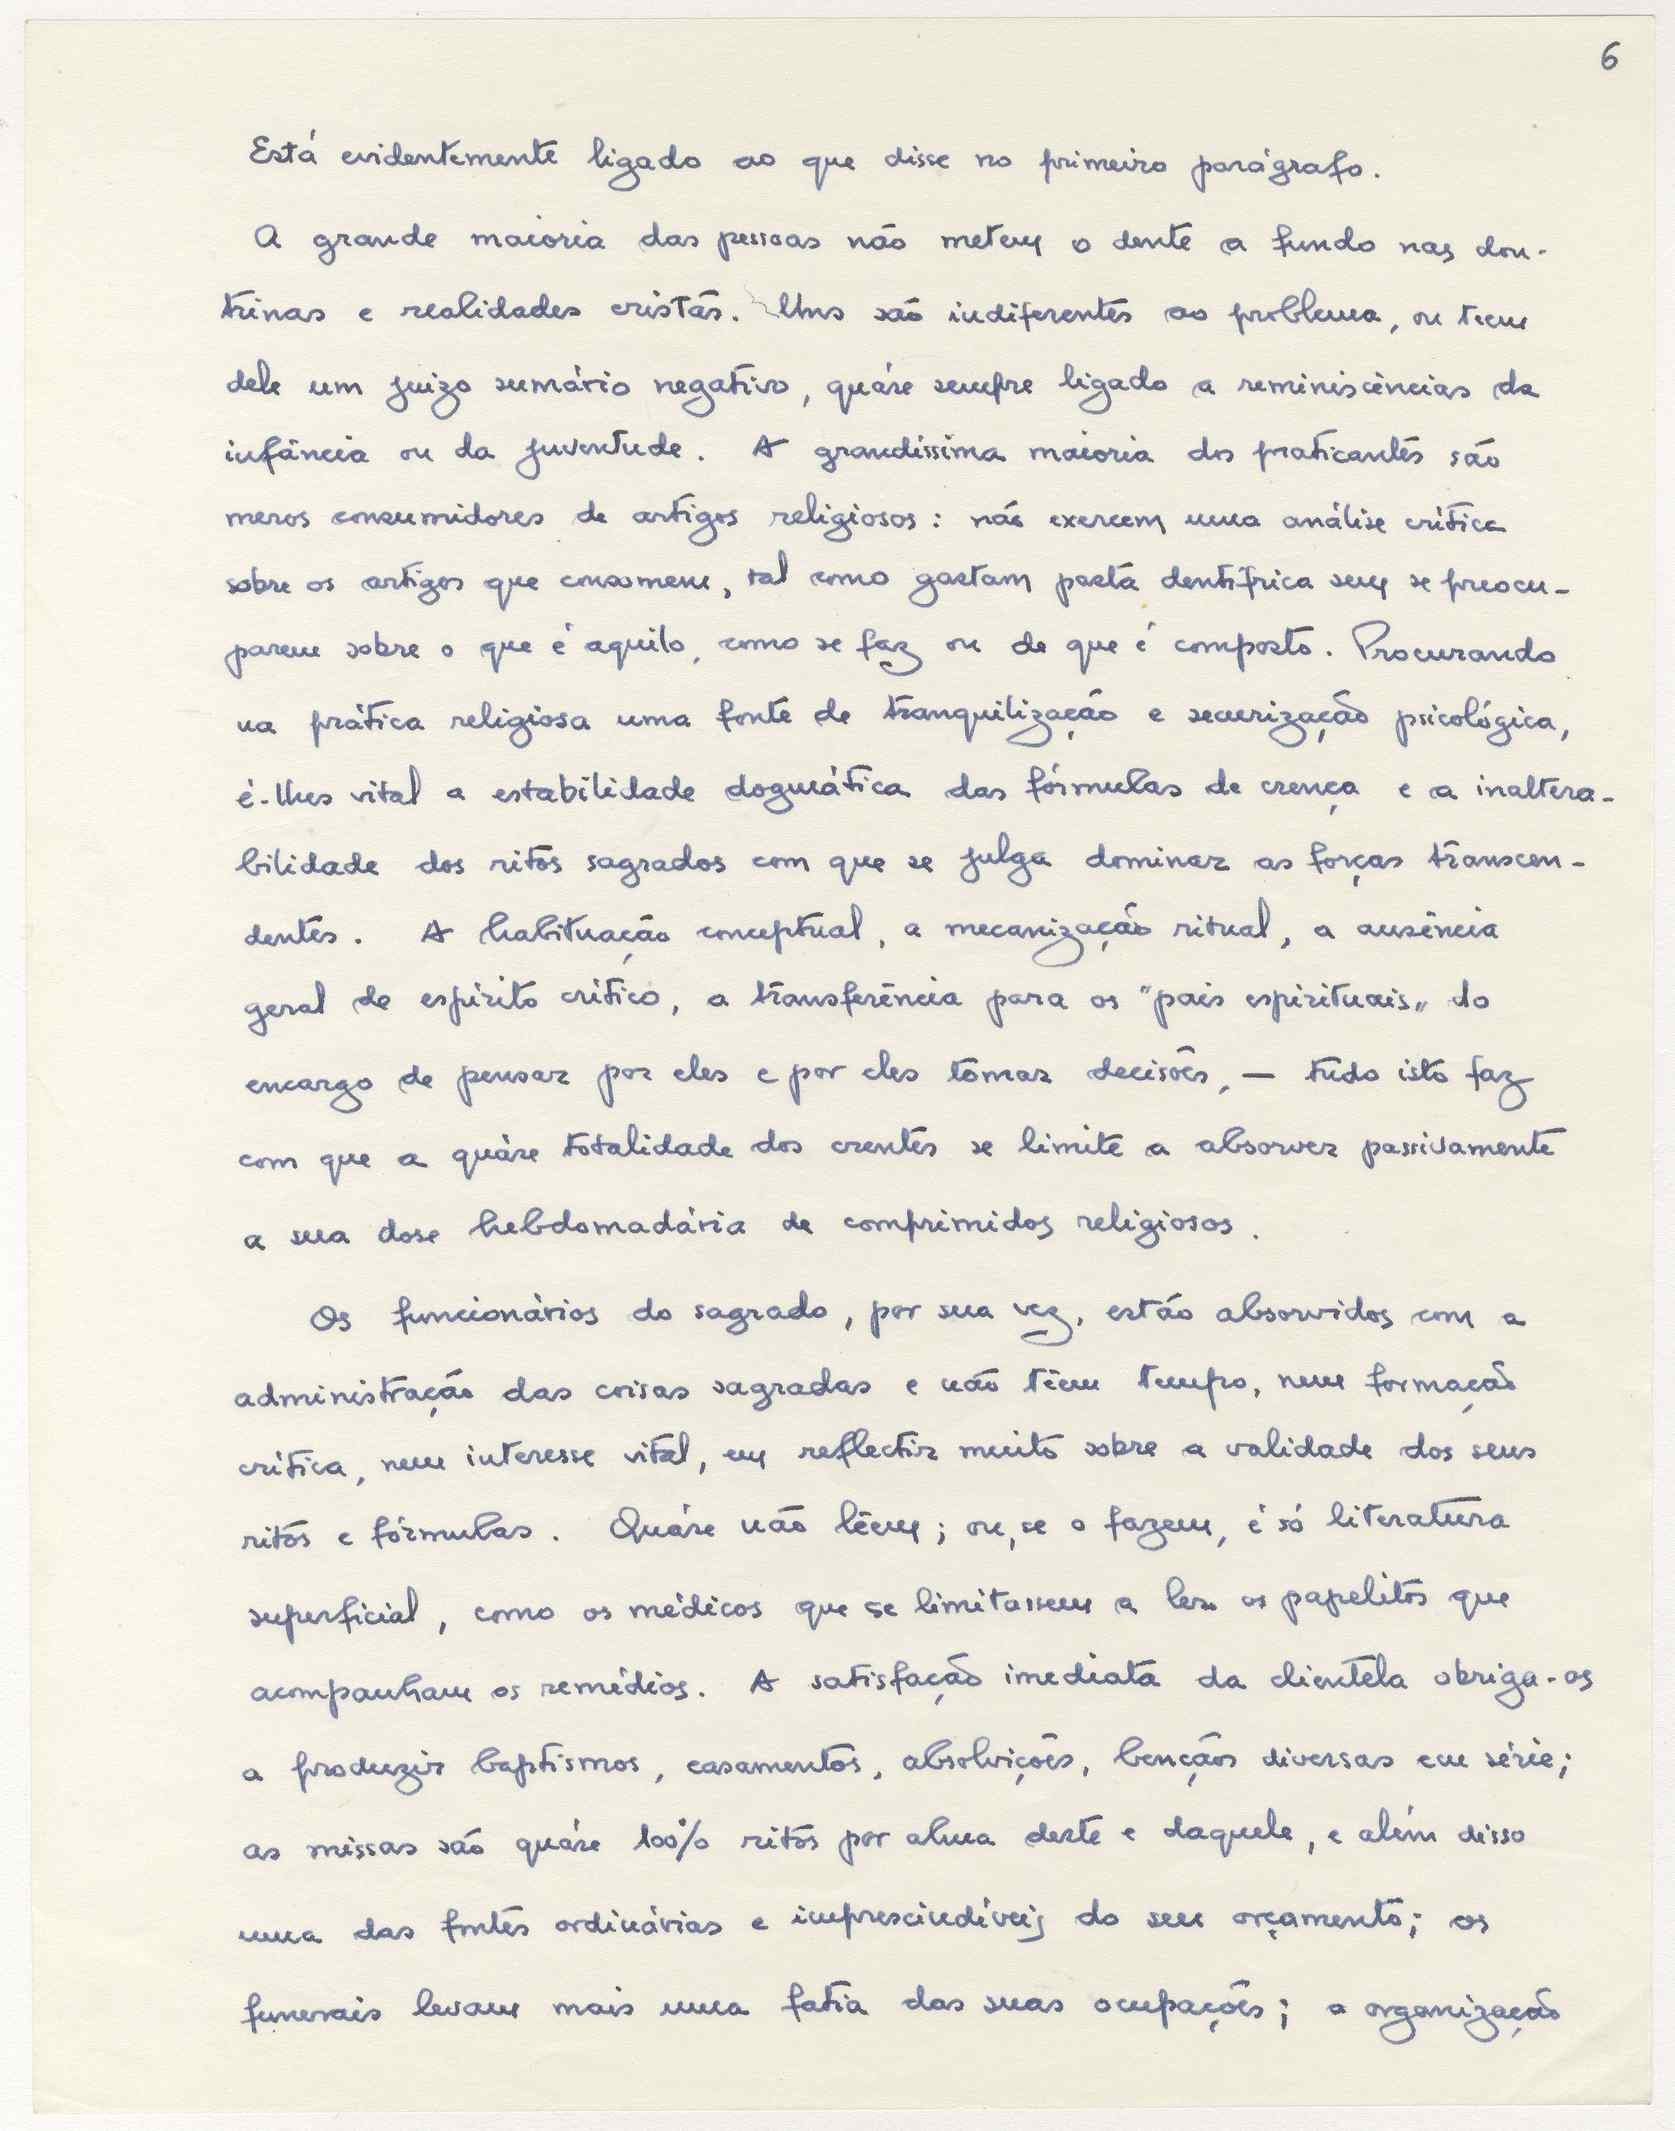 6
Está evidentemente ligado ao que disse no primeiro parágrafo.
A grande maioria das pessoas não metem o dente a fundo nas dou-
trinas e realidades cristãs. Uns são indiferentes ao problema, ou teem
dele um juizo sumário negativo, quáse sempre ligado a reminiscências da
infância ou da juventude. A grandíssima maioria dos praticantes são
meros consumidores de artigos religiosos: não exercem uma análise crítica
sobre os artigos que consomem, tal como gastam pasta dentífrica sem se preocu-
parem sobre o que é aquilo, como se faz ou de que é composto. Procurando
na prática religiosa uma fonte de tranquilização e securização psicológica,
é-lhes vital a estabilidade dogmática das fórmulas de crença e a inaltera-
bilidade dos ritos sagrados com que se julga dominar as forças transcen-
dentes. A habituação conceptual, a mecanização ritual, a ausência
geral de espírito crítico, a transferência para os "pais espirituais" do
encargo de pensar por eles e por eles tomar decisões, — tudo isto faz
com que a quáse totalidade dos crentes se limite a absorver passivamente
a sua dose hebdomadária de comprimidos religiosos.
Os funcionários do sagrado, por sua vez, estão absorvidos com a
administração das coisas sagradas e não têem tempo, nem formação
crítica, nem interesse vital, em reflectir muito sobre a validade dos seus
ritos e fórmulas. Quáse não lêem; ou, se o fazem, é só literatura
superficial, como os médicos que se limitassem a ler os papelitos que
acompanham os remédios. A satisfação imediata da clientela obriga-os
a produzir baptismos, casamentos, absolvições, bençãos diversas em série;
as missas são quáse 100% ritos por alma deste e daquele, e além disso
uma das fontes ordinárias e imprescindíveis do seu orçamento; os
funerais levam mais uma fatia das suas ocupações; a organização